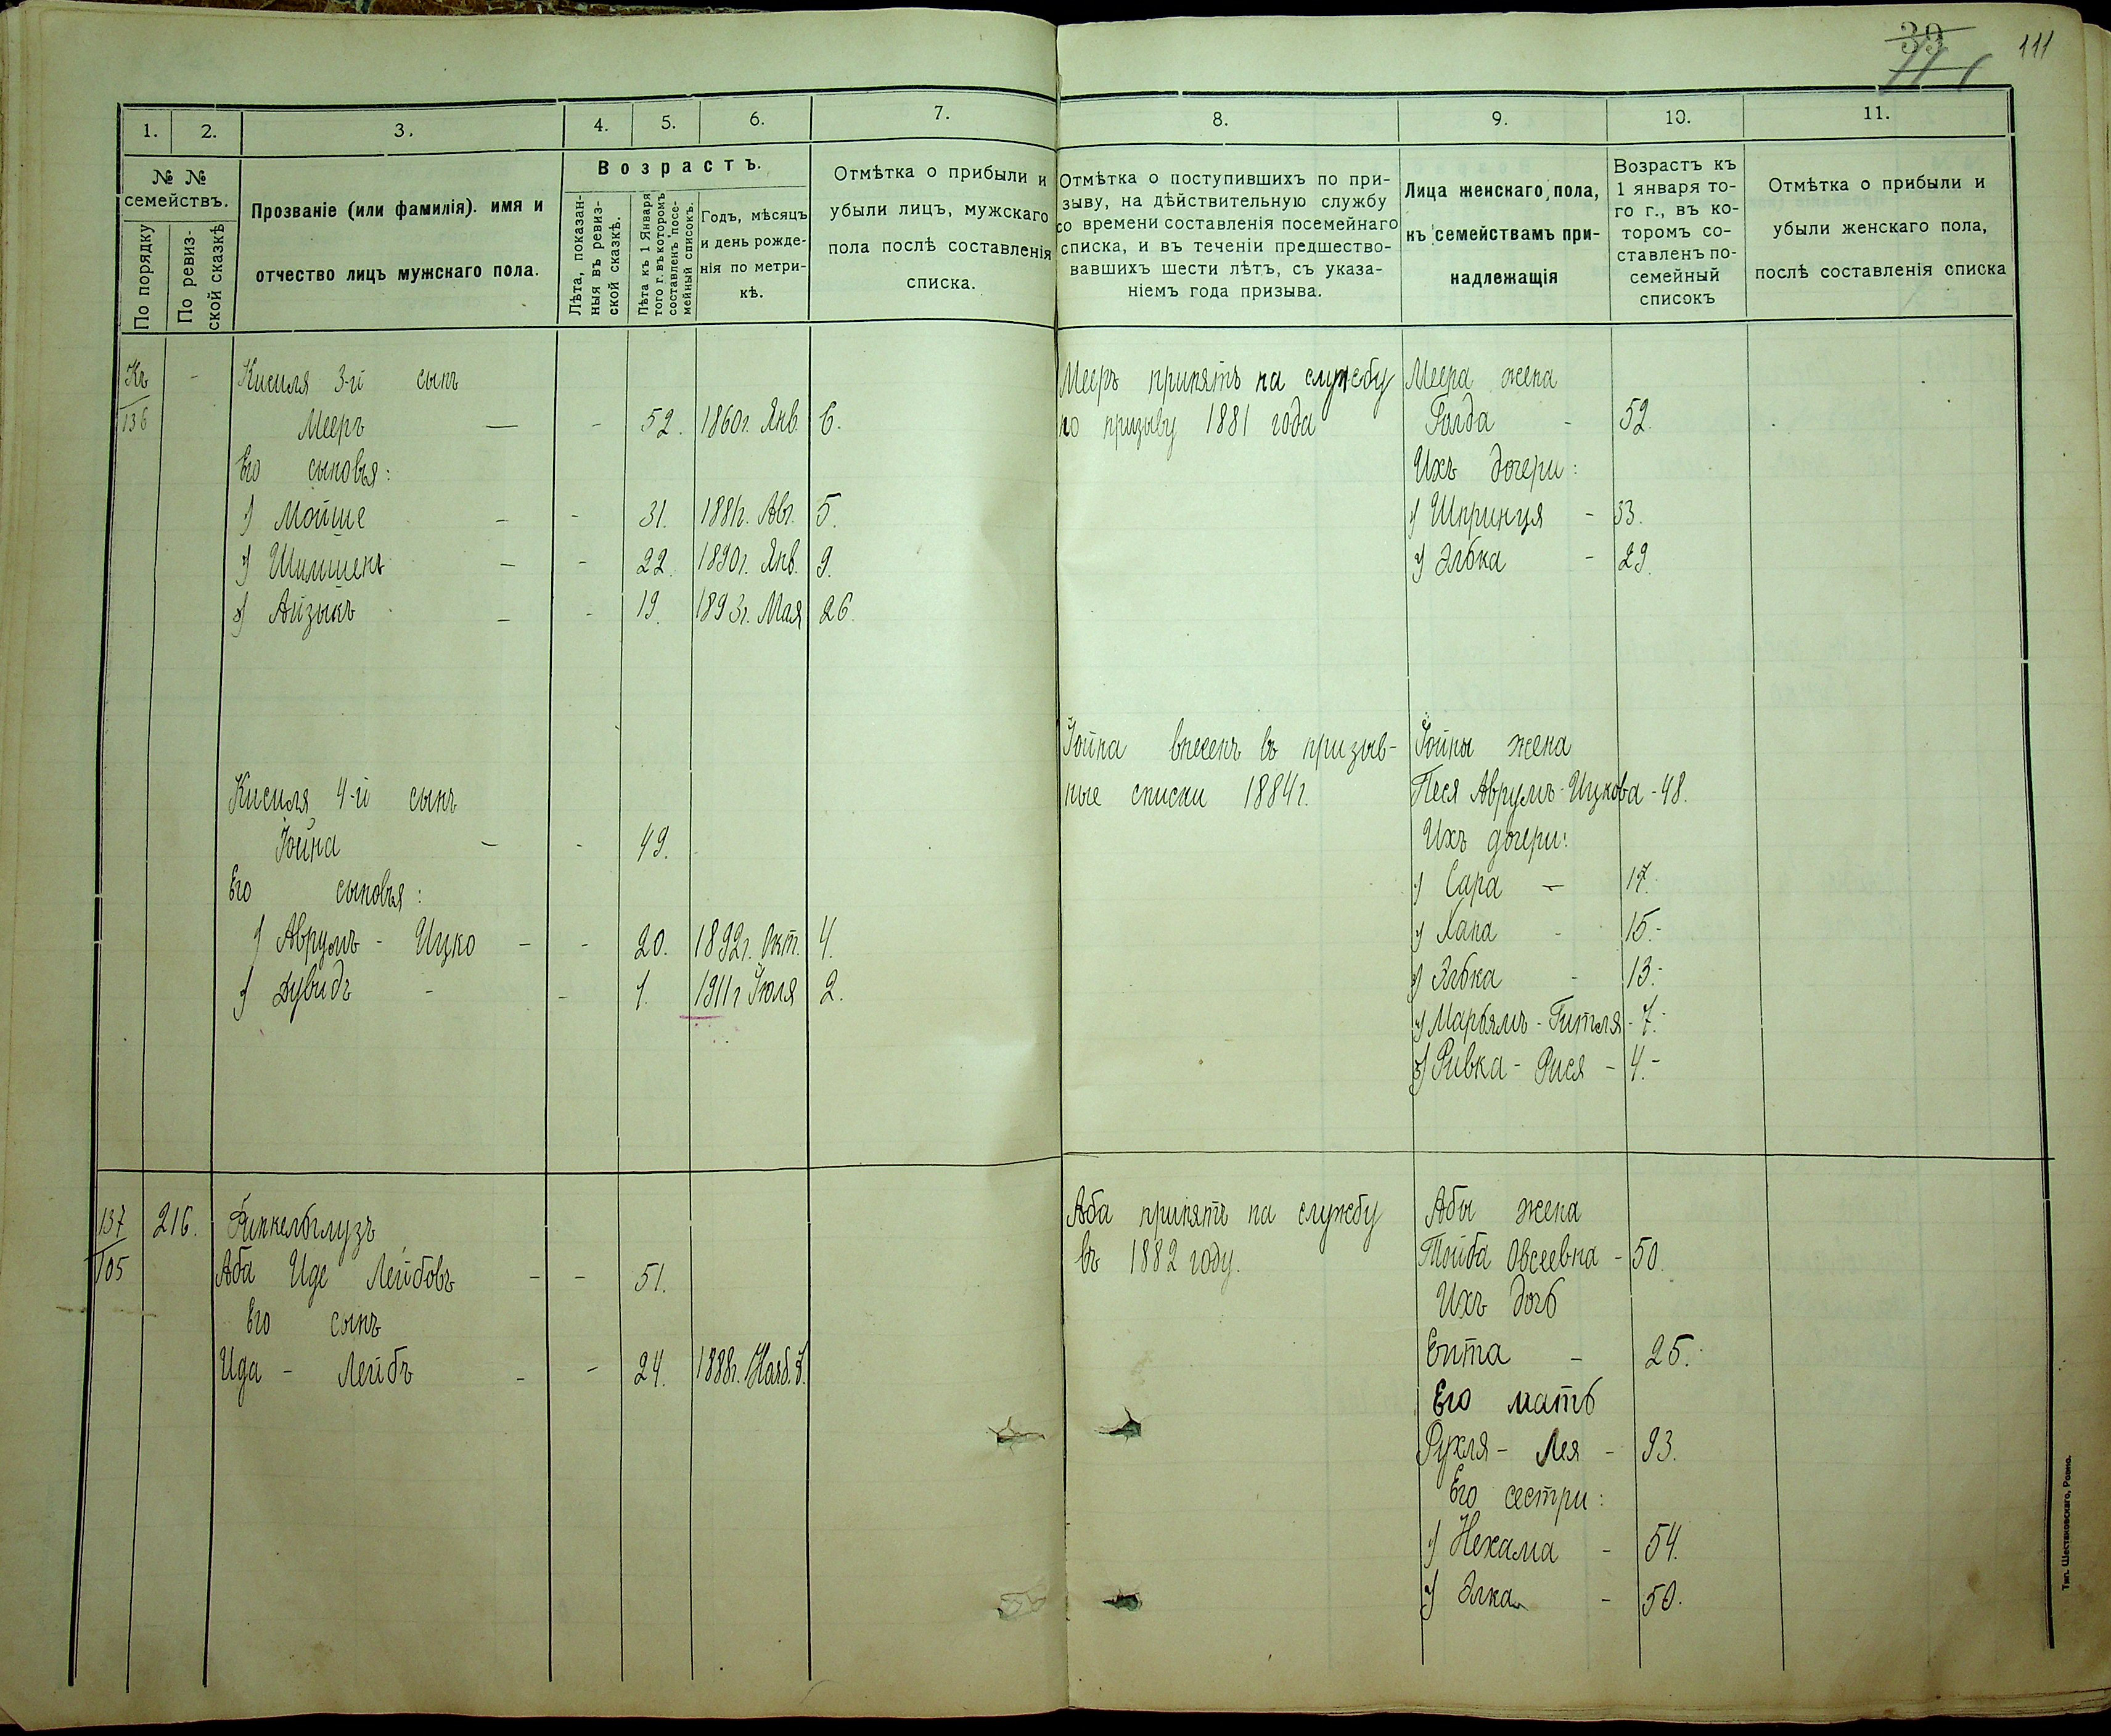 39
111
1.
2.
3.
4.
5.
6.
7.
8.
9.
10.
11.
№ №
семействъ.
По порядку
По ревиз-
ской сказкѣ
Прозваніе (или фамилія). имя и
отчество лицъ мужскаго пола.
Возрастъ.
Лѣта, показан-
ныя въ ревиз-
ской сказкѣ.
Лѣта къ 1 Января
того г. въ которомъ
составленъ посе-
мейный списокъ.
Годъ, мѣсяцъ
и день рожде-
нія по метри-
кѣ.
Отмѣтка о прибыли и
убыли лицъ, мужскаго
пола послѣ составленія
списка.
Отмѣтка о поступившихъ по при-
зыву, на дѣйствительную службу
со времени составленія посемейнаго
списка, и въ теченіи предшество-
вавшихъ шести лѣтъ, съ указа-
ніемъ года призыва.
Лица женскаго пола,
къ семействамъ при-
надлежащія
Возрастъ къ
1 января то-
го г., въ ко-
торомъ со-
ставленъ по-
семейный
списокъ
Отмѣтка о прибыли и
убыли женскаго пола,
послѣ составленія списка
Къ
136
-
Кисиля 3-й сынъ
Мееръ — - 52. 1860г. Янв. 6.
Его сыновья:
1) Мойше - - 31. 1881г. Авг. 5.
2) Шимшенъ - - 22. 1890г. Янв. 9.
3) Айзыкъ - - 19. 1893г. Мая 26.
Мееръ принятъ на службу
по призыву 1881 года
Меера жена
Голда - 52.
Ихъ дочери:
1) Шпринця - 33.
2) Эльбка - 29.
Кисиля 4-й сынъ
Іойна - - 49.
Его сыновья:
1) Аврумъ - Ицко - - 20. 1892г. Окт. 4.
2) Дувидъ - - 1. 1911г Іюля 2.
Іойна внесенъ въ призыв-
ные списки 1884г.
Іойны жена
Песя Аврумъ-Ицкова - 48.
Ихъ дочери:
1) Сара - 17.
2) Хана - 15.-
3) Злбка - 13.-
4) Марьямъ - Гитля - 7.-
5) Ривка - Рися - 4.-
137
105
216.
Финкельглузъ
Аба Иде Лейбовъ - - 51.
Его сынъ
Ида - Лейбъ - - 24. 1888г. Нояб. 8.
Аба принятъ на службу
въ 1882 году.
Абы жена
Тойба Овсеевна - 50.
Ихъ дочь
Ента - 25.
Его мать
Рухля - Лея - 93.
Его сестри:
1) Нехама - 54.
2) Элка - 50.
Тип. Шестаковскаго, Ровно.